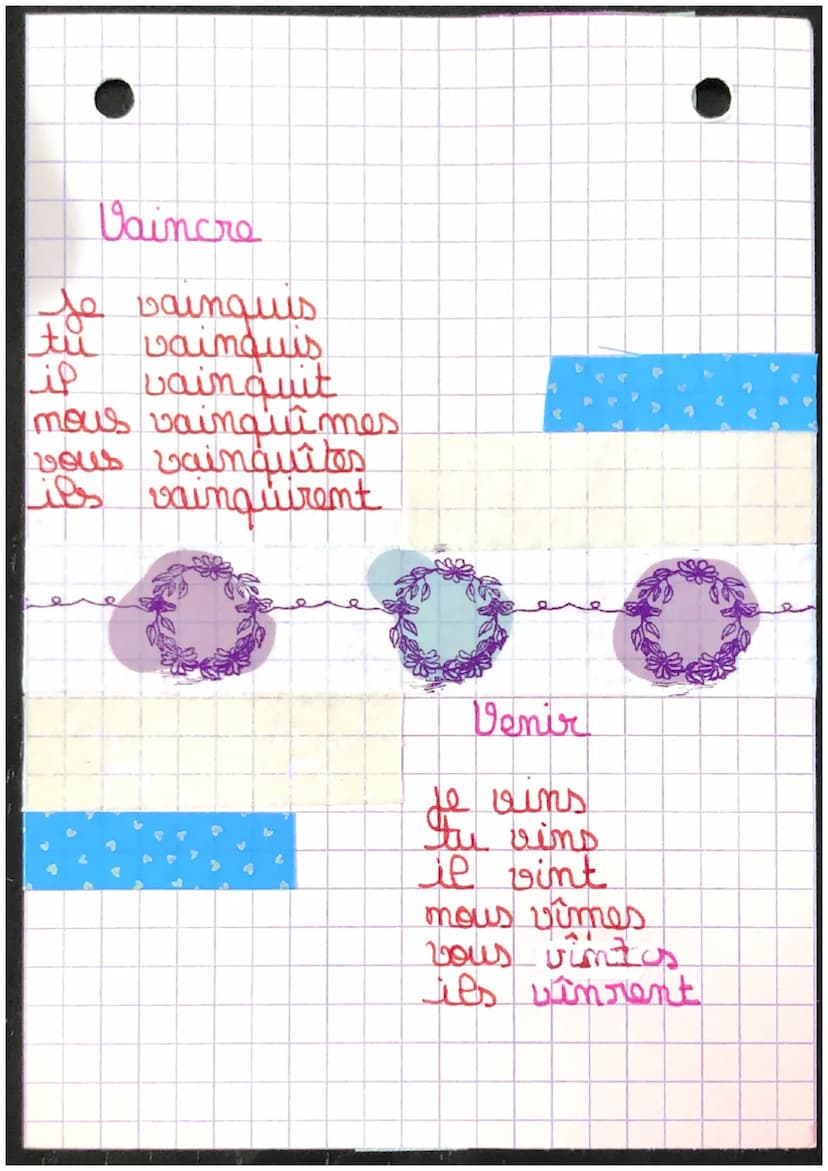 Vaincre
je vainquis
tu vainquis
il vainquit
nous vainquîmes
vous vainquîtes
ils vainquirent
Venir
je vins
tu vins
il vint
nous vîmes
vous vîntes
ils vînrent